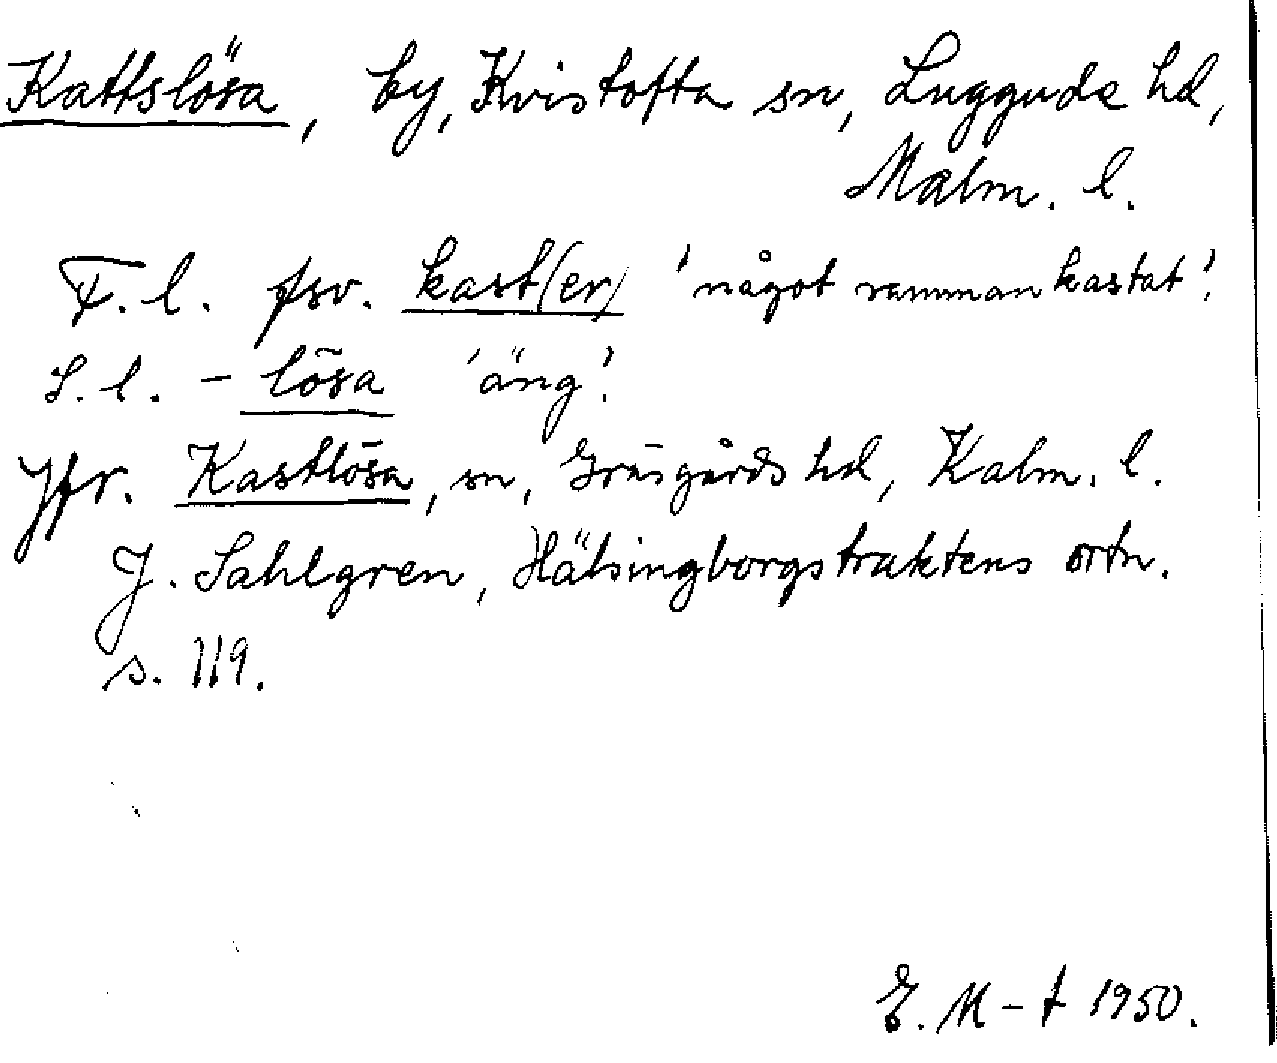 Kattslösa, by, Kvistofta sn, Luggude hd,
Malm. l.
F. l. fsv. kast(er) 'något samman kastat'.
S. l. - lösa 'äng'.
Jfr. Kastlösa, sn, Gräsgårds hd, Kalm. l.
J. Sahlgren, Hälsingborgstraktens ortn.
s. 119.
E. M-t 1950.